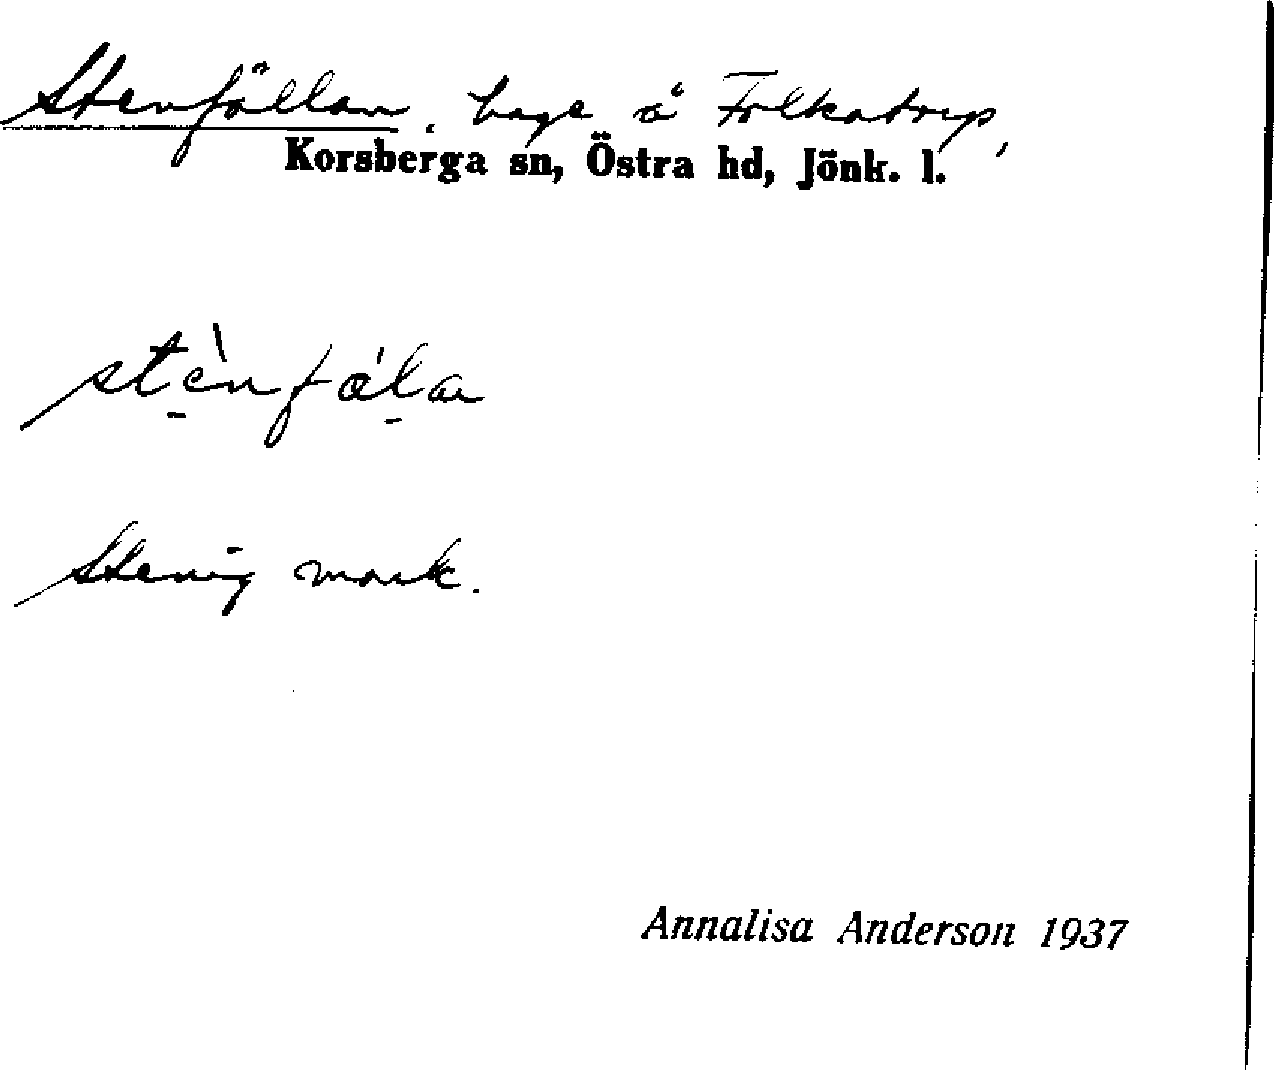 Stenfållan, hage å Folkatorp,
Korsberga sn, Östra hd, Jönk. l.
stènfåla
Stenig mark.
Annalisa Anderson 1937